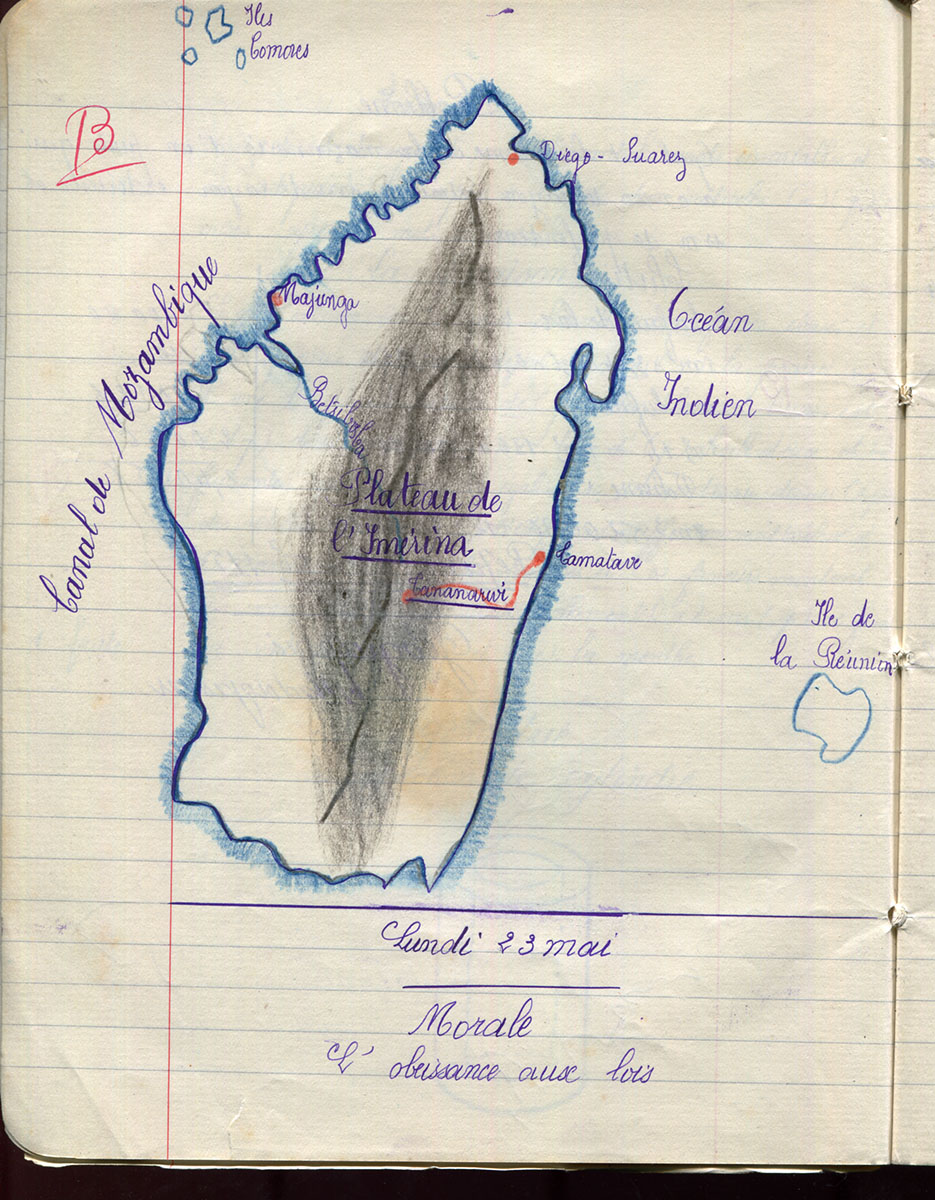 Iles
Comores
B
Diégo-Suarez
Majunga
Canal de Mozambique
Océan
Indien
Betsiboka
Plateau de
l'Imérina
Tamatave
Tananarivi
Ile de
la Réunion
Lundi 23 mai
Morale
L'obeissance aux lois